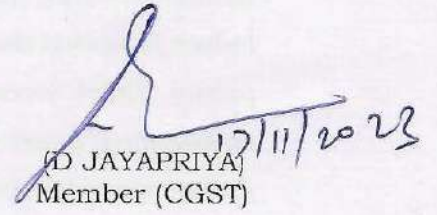 17/11/2023
(D JAYAPRIYA)
Member (CGST)